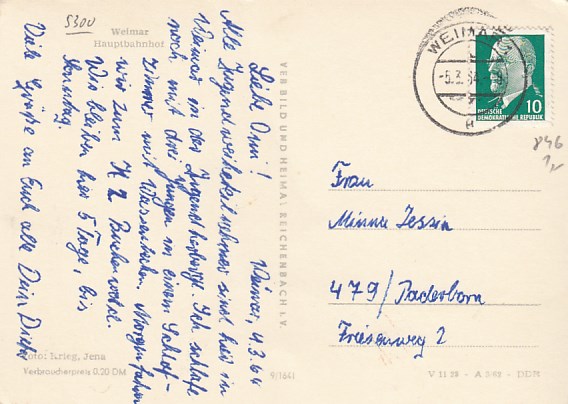 5300
Weimar
Hauptbahnhof
Weimar, 4.3.64
Liebe Omi!
Alle Jugendweiheteilnehmer sind hier in
Weimar in der Jugendherberge. Ich schlafe
noch mit drei Jungen in einem Schlaf-
zimmer mit Wasserbecken. Morgen fahren
wir zum KZ Buchenwald.
Wir bleiben hier 5 Tage, bis
Sonntag.
Viele Grüße an Euch alle Dein Dieter
Foto: Krieg, Jena
Verbraucherpreis 0.20 DM
VEB BILD UND HEIMAT REICHENBACH i. V.
9/1641
WEIMAR
5.3.64
10
DEUTSCHE
DEMOKRATISCHE REPUBLIK
846
Frau
Minna Jessin
479/Paderborn
Friesenweg 2
V 11 28 - A 5/62 - DDR